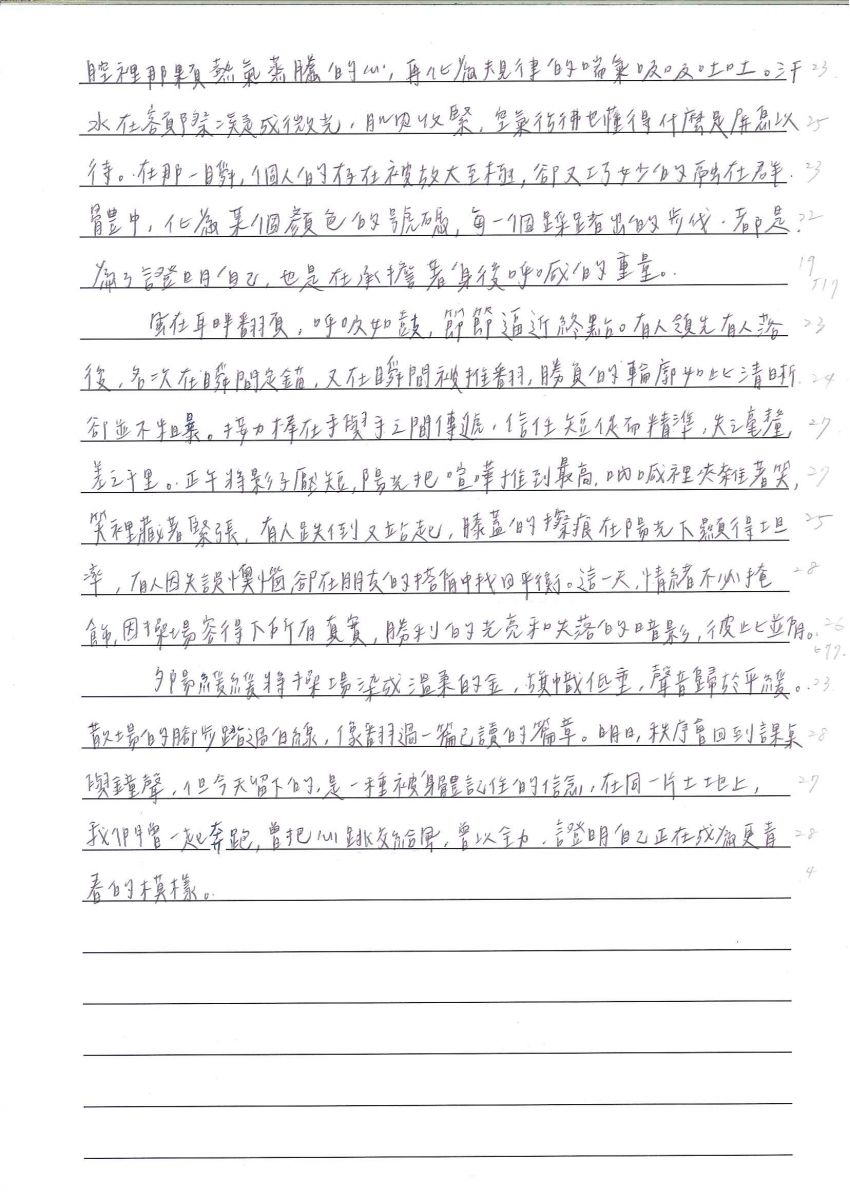 腔裡那顆熱氣蒸騰的心,再化為規律的喘氣吸吸吐吐。汗 23
水在額際漾成微光,肌肉收緊,空氣彷彿也懂得什麼是屏息以 25
待。在那一瞬,個人的存在被放大至極,卻又巧妙的融在群 23
體中,化為某個顏色的號碼,每一個踩踏出的步伐.都是 22
為了證明自己,也是在承擔著身後呼喊的重量。 19
517
風在耳畔翻頁,呼吸如鼓,節節逼近終點。有人領先有人落 23
後,名次在瞬間定錨,又在瞬間被推翻,勝負的輪廓如此清晰 24
卻並不粗暴。接力棒在手與手之間傳遞,信任短促而精準,失之毫釐, 27
差之千里。正午將影子壓短,陽光把喧嘩推到最高,吶喊裡夾雜著笑, 27
笑裡藏著緊張,有人跌倒又站起,膝蓋的擦痕在陽光下顯得坦 25
率,有人因失誤懊惱,卻在朋友的搭肩中找回平衡。這一天,情緒不必掩 28
飾,因操場容得下所有真實,勝利的光亮和失落的暗影,彼此並肩。 26
677
夕陽緩緩將操場染成溫柔的金,旗幟低垂,聲音歸於平緩。 23
散場的腳步踏過白線,像翻過一篇已讀的篇章。明日,秩序會回到課桌 28
與鐘聲,但今天留下的,是一種被身體記住的信念,在同一片土地上, 27
我們曾一起奔跑,曾把心跳交給風,曾以全力.證明自己正在成為更青 28
春的模樣。 4